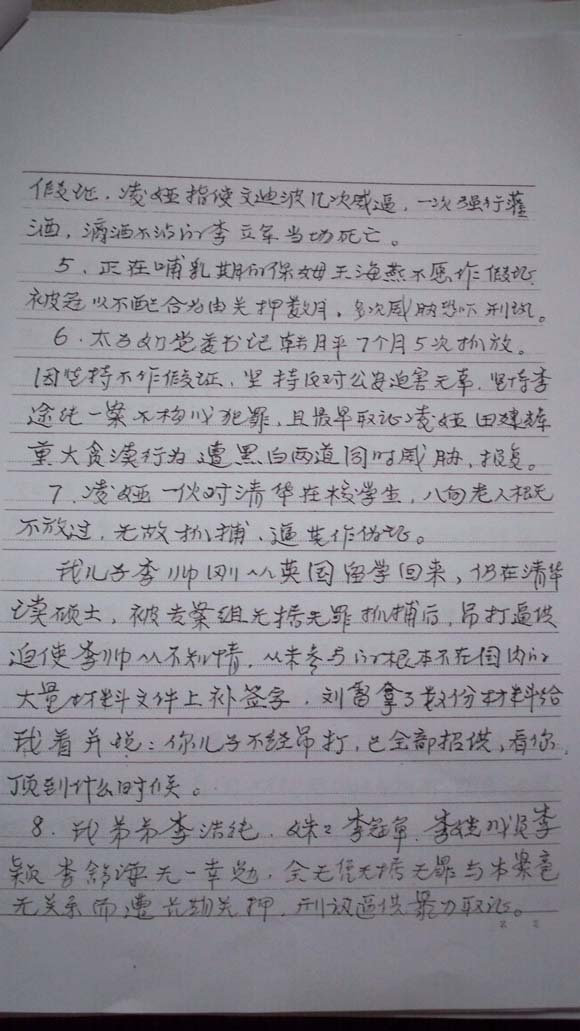 假证，凌娅指使文迪波几次威逼，一次强行灌
酒，滴酒不沾的李立军当场死亡。
5、正在哺乳期的保姆王海燕不愿作假证
被冠以不配合为由关押数月，多次威胁恐吓刑讯。
6、太子奶党委书记韩月平7个月5次抓放。
因坚持不作假证，坚持反对公安迫害无辜，坚持李
途纯一案不构成犯罪，且最早取证凌娅田建辉
重大贪渎行为遭黑白两道同时威胁，报复。
7、凌娅一伙对清华在校学生，八旬老人根无
不放过，无故抓捕、逼其作伪证。
我儿子李帅刚从英国留学回来，仍在清华
读硕士，被专案组无据无罪抓捕后，吊打逼供
迫使李帅从不知情，从未参与的根本不在国内的
大量材料文件上补签字。刘雷拿了数份材料给
我看并说：你儿子不经吊打，已全部招供，看你
顶到什么时候。
8、我弟弟李浩纯，妹妹李冠军、李
李 无一幸免，全无凭无据无罪与本案毫
无关系而遭长期关押，刑讯逼供暴力取证。